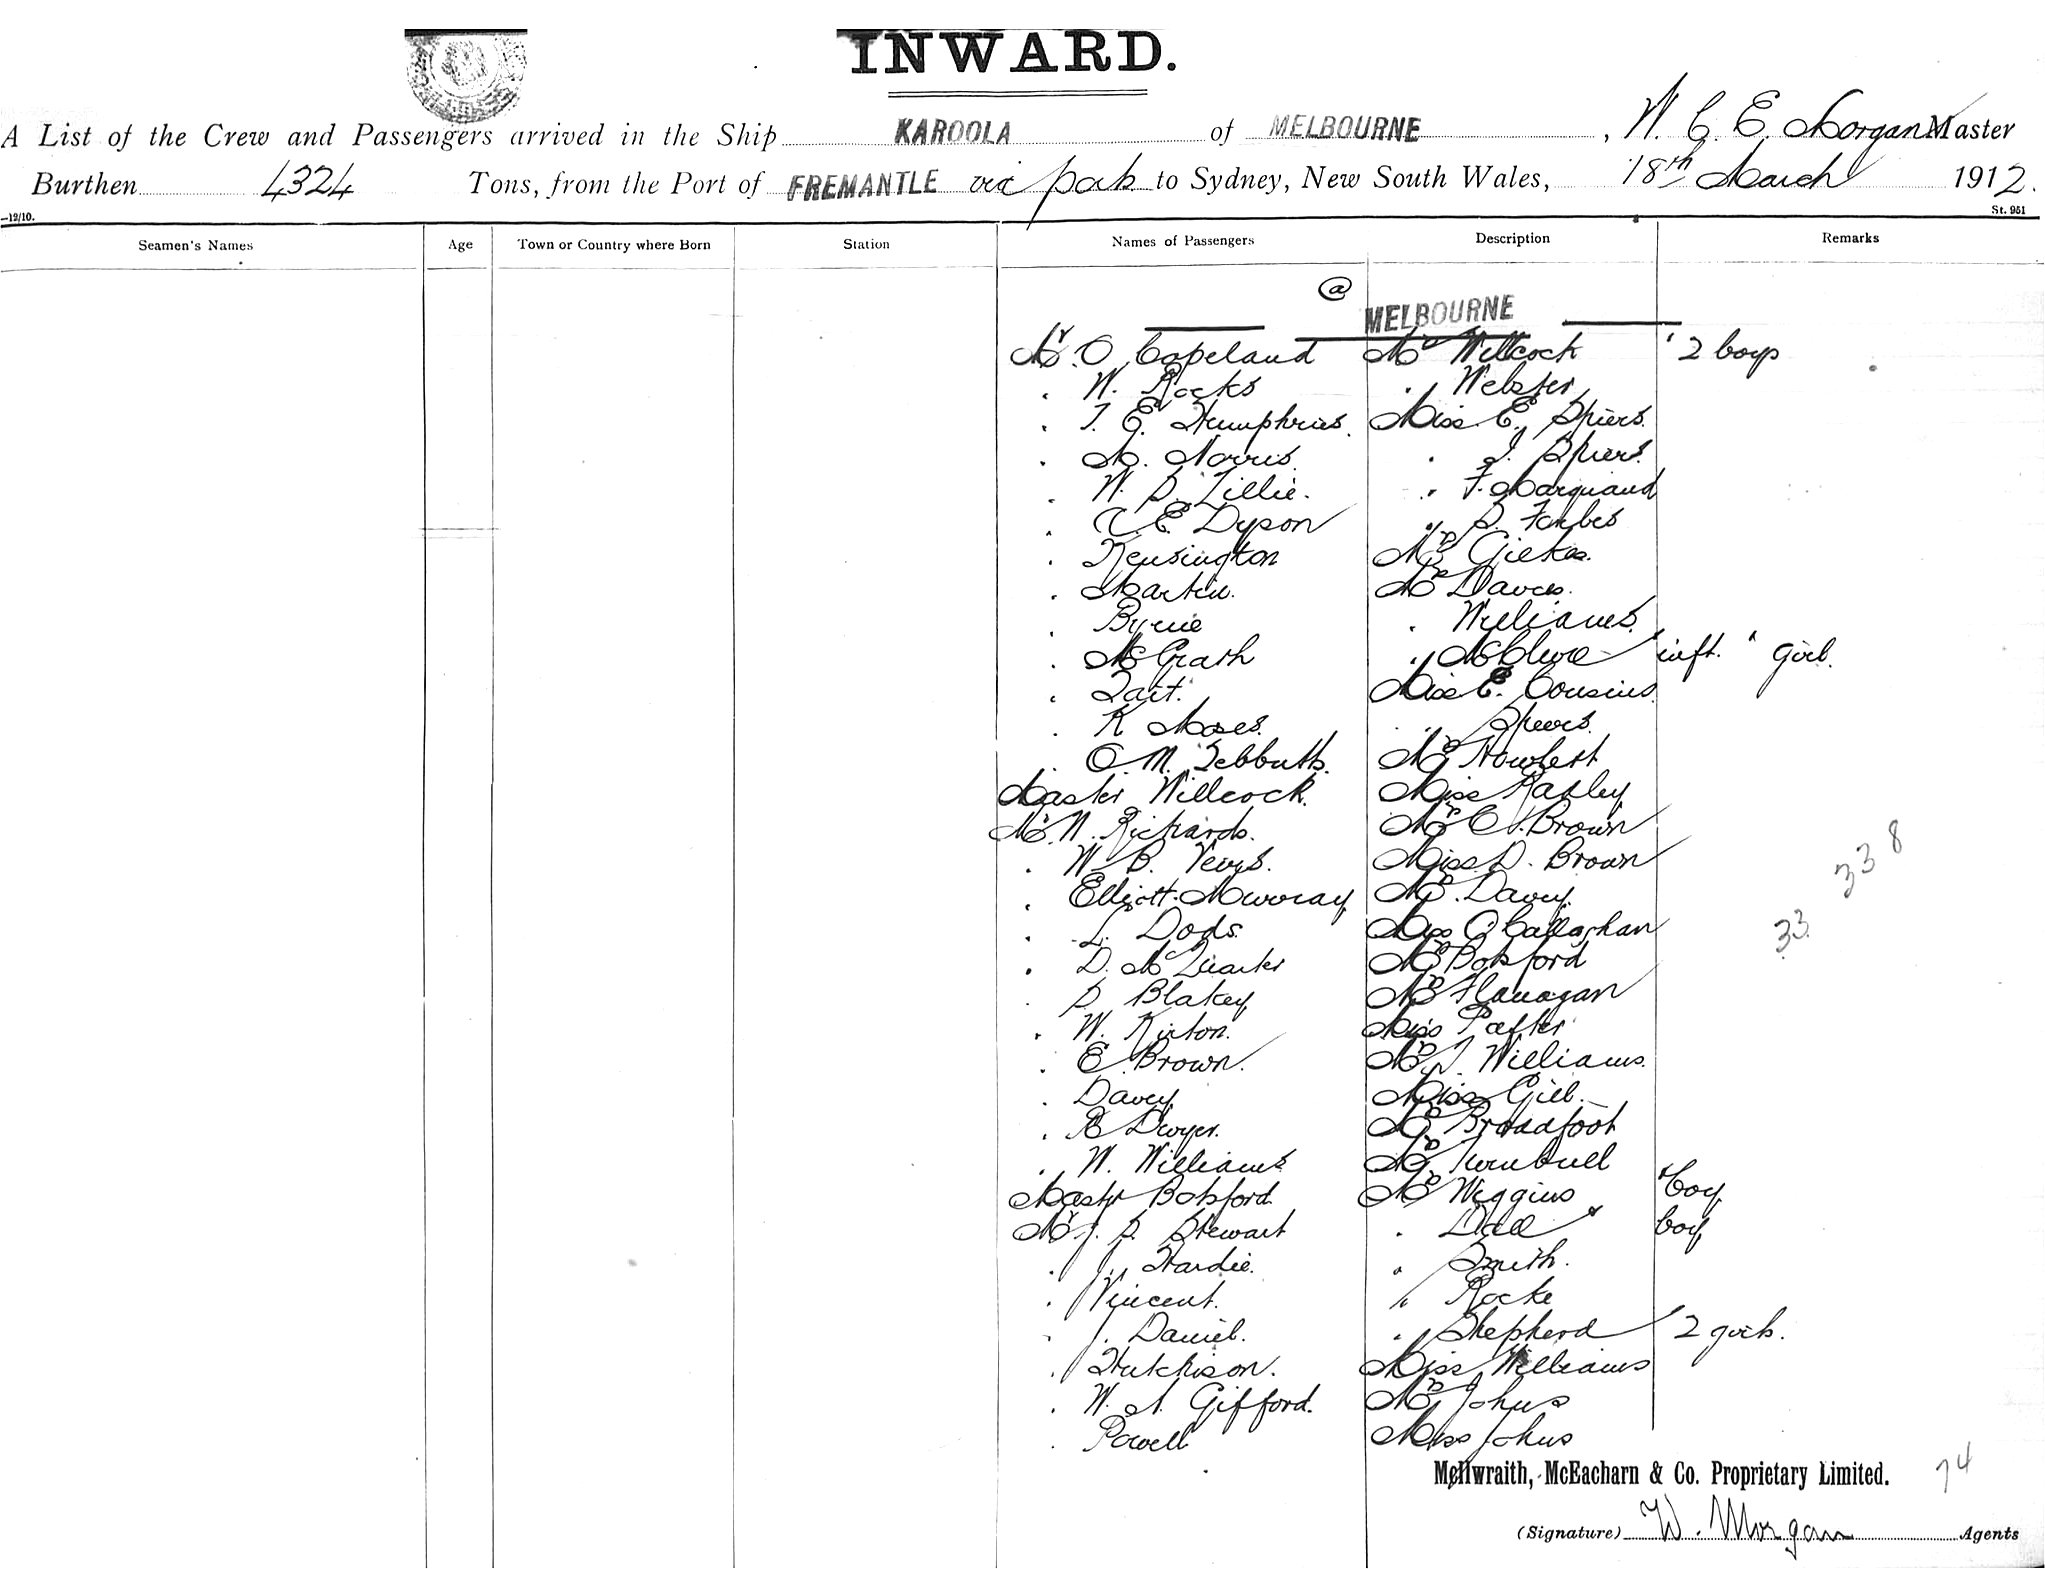 INWARD.
A List of the Crew and Passengers arrived in the Ship KAROOLA of MELBOURNE, W. C. E. Morgan Master
Burthen 4324 Tons, from the Port of FREMANTLE via ports to Sydney, New South Wales, 18th March 1912.
—12/10. St. 951
Seamen's Names Age Town or Country where Born Station Names of Passengers Description Remarks
@ MELBOURNE
Mr. O Copeland Mrs Willcock " 2 boys
" W. Rocks " Webster
" T. E. Humphries. Miss E. Spiers.
" M. Norris. " J. Spiers.
" W. S. Lillie. " F. Marquand
" C. E. Dyson " S. Forbes
" Kensington Mrs
" Martin. Mrs Davies.
" Byrne " Williams.
" McGrath " McClure " inft. " Girl.
" Tait. Miss E. Cousins.
" K Moses. " Speers.
" O. M. Tebbutts. Mrs Howlett
Master Willcock. Miss Rapley
Mr. N. Richards. Mr C. Brown
" W B. Miss D. Brown
" Elliott-Murray Mrs. Davey.
" L. Dods. Miss O'Callaghan
" D. Mrs Botsford
" S Blakey Mrs Flanagan
" W. Kirton. Miss
" E. Brown. Mrs J. Williams.
" Davey Miss Gill.
" Dwyer. Mrs Broadfoot
" W. Williams Mrs Turnbull
Master Botsford. Mrs Wiggins " boy
Mr J. S. Stewart " Dall " boy
" J. Hardie. " Smith.
" Vincent. " Rocke
" J. Daniel. " Shepherd " 2 girls.
" Hutchison. Miss Williams
" W. A. Gifford. Mrs Johns
" Powell Miss Johns
33 8
33.
McIlwraith, McEacharn & Co. Proprietary Limited. 74
(Signature) W. Morgan Agents